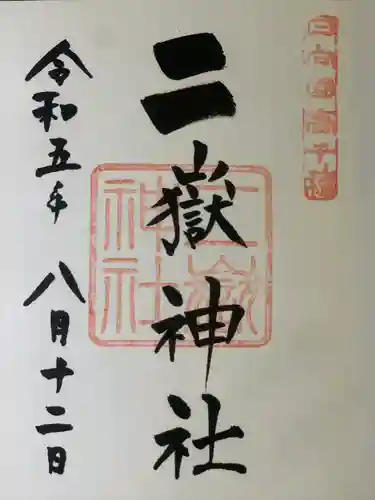 二嶽神社
令和五年
八月十二日
二嶽
神社